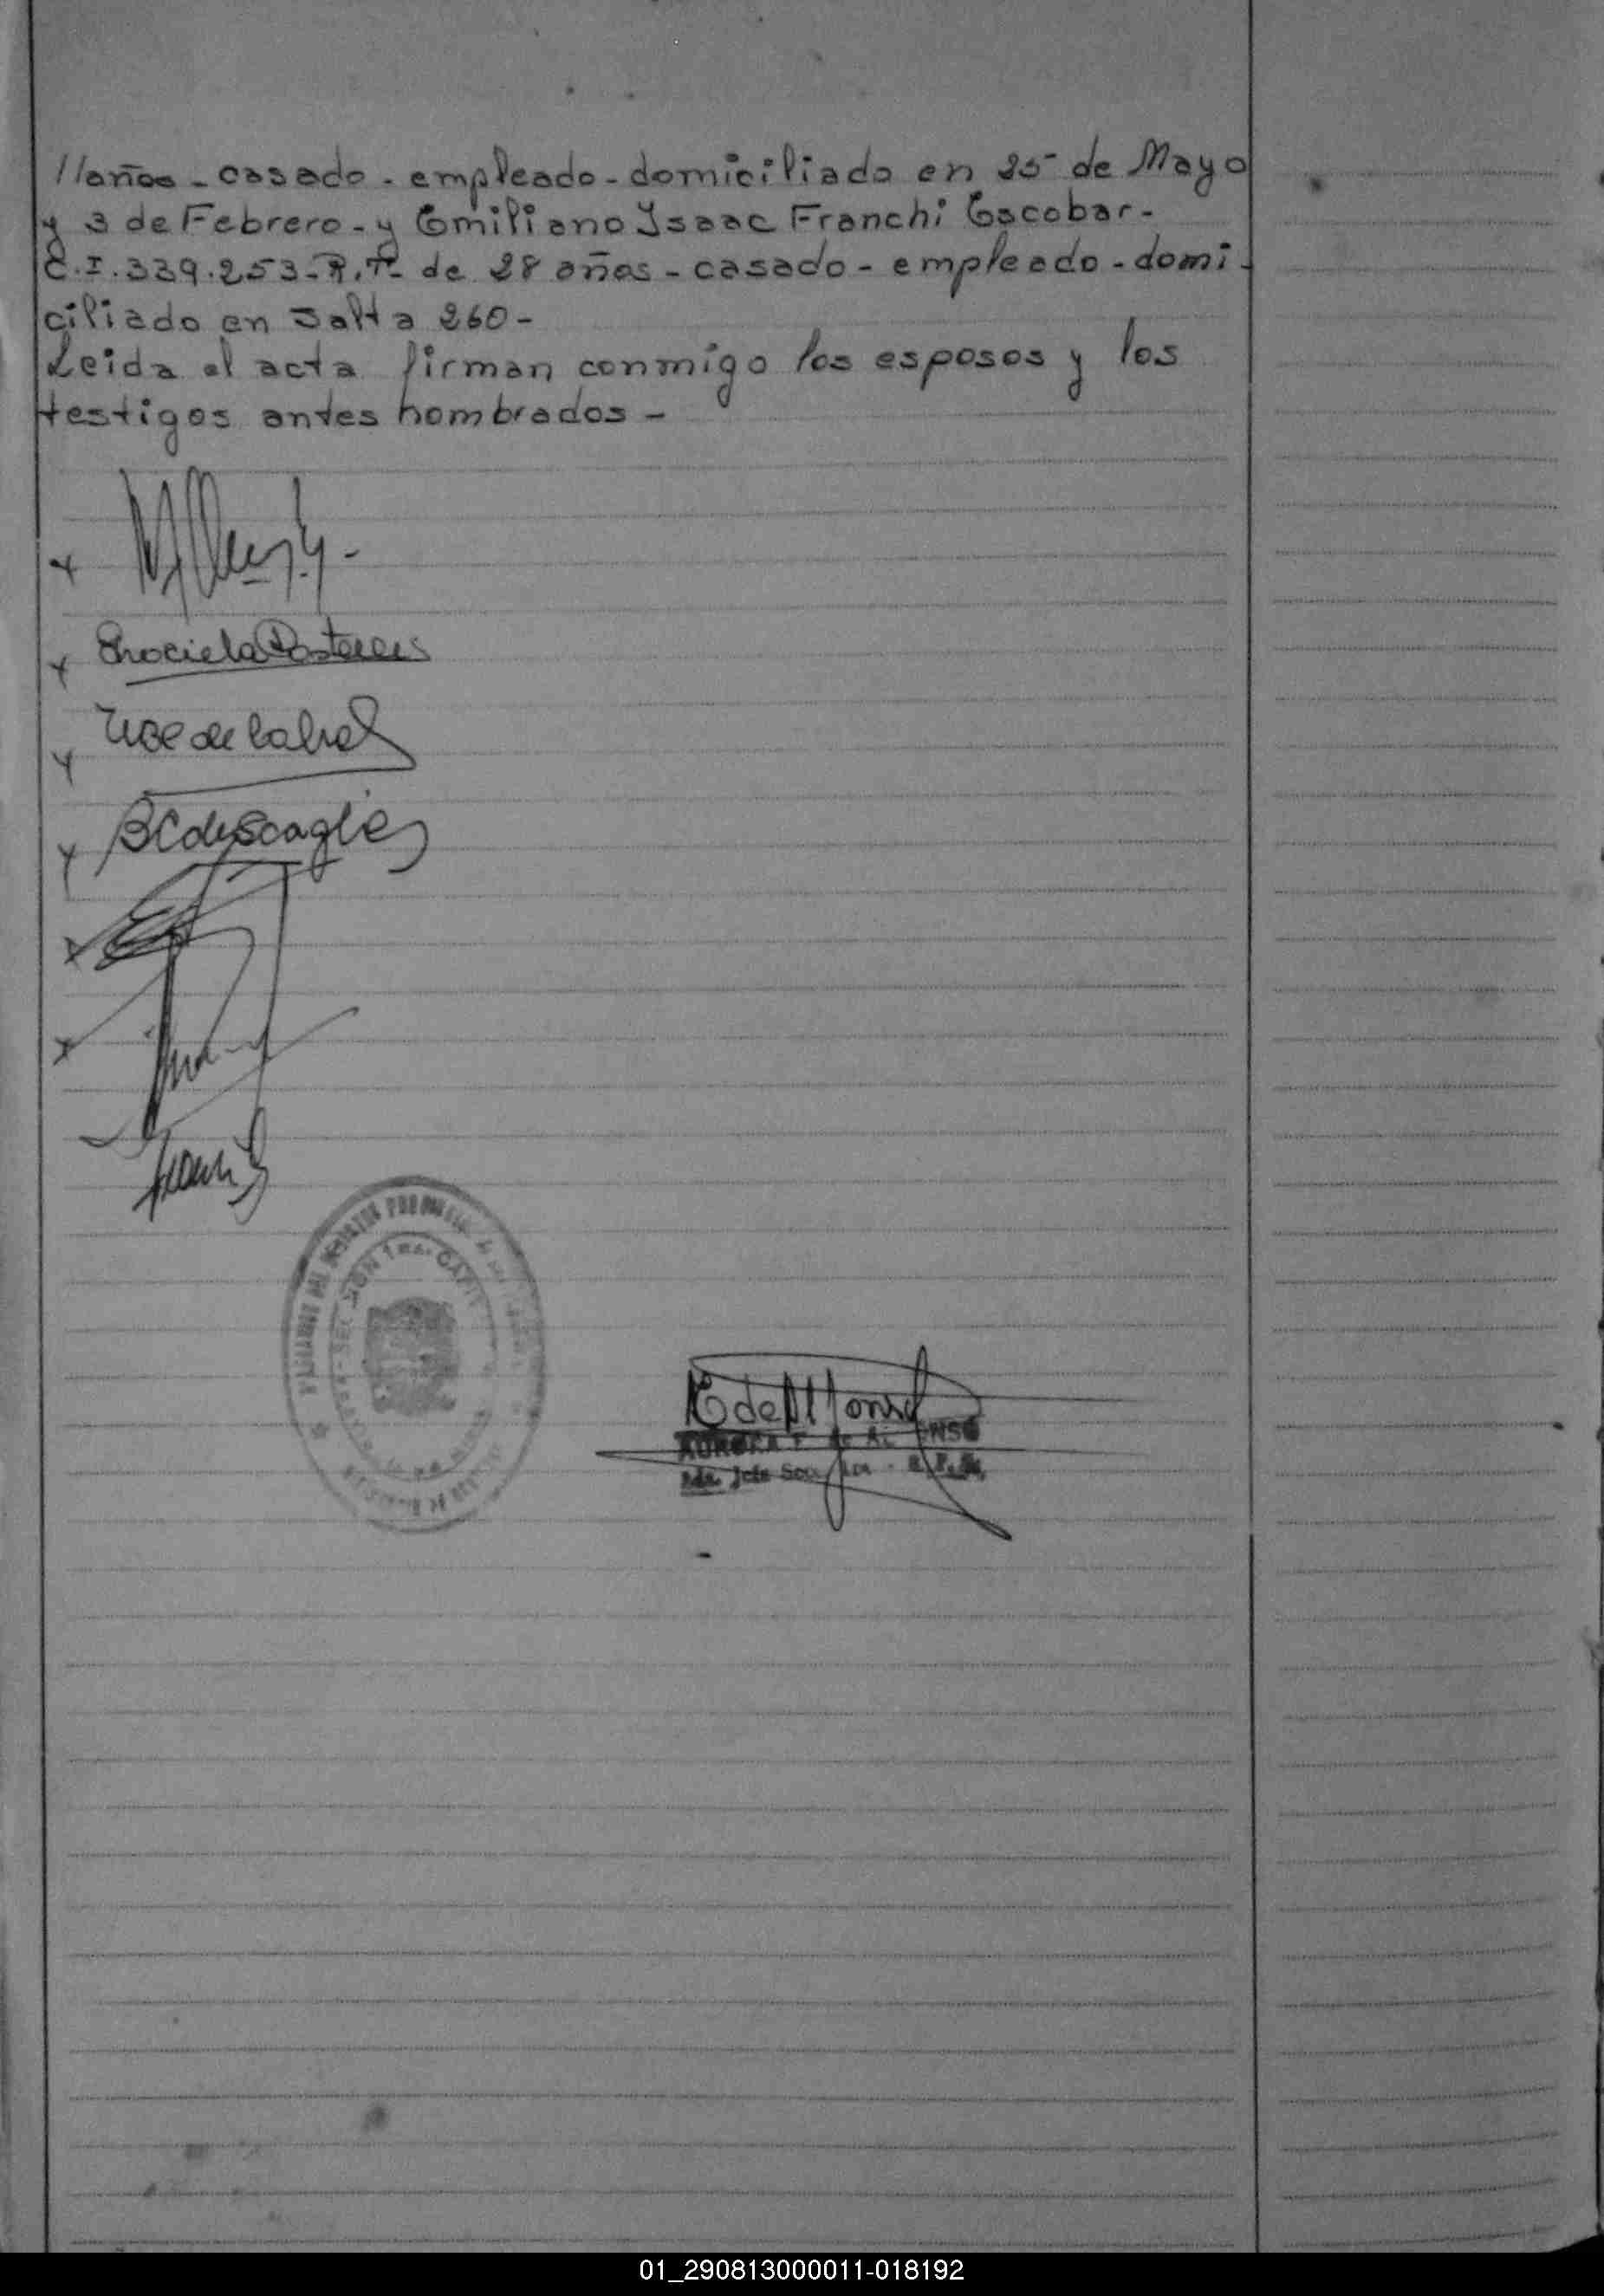 //años - casado - empleado - domiciliado en 25 de Mayo
y 3 de Febrero - y Emiliano Ysaac Franchi Escobar -
C.I. 339.253 - R.P. de 28 años - casado - empleado - domi-
ciliado en Salta 260 -
Leida el acta firman conmigo los esposos y los
testigos antes nombrados -
de Cabral
BC de Scaglia
SECCION 1ra. CAPITAL
de Alfonso
AURORA F. de ALFONSO
01_290813000011-018192